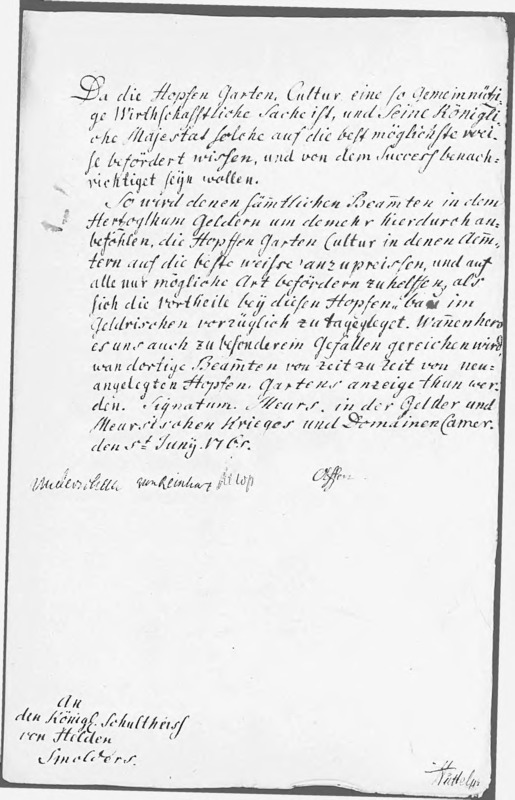 Da die Hopfen Garten, Cultur eine so Gemeinnüzi-
ge Wirthschafftliche Sache ist, und Seine Königli-
che Majestät solche auf die best möglichste wei-
se befördert wissen, und von dem Success benach-
richtiget seÿn wollen.
So wird denen sämtlichen Beam̄ten in dem
Hertzogthum Geldern um demehr hierdurch an-
befohlen, die Hopffen Garten Cultur in denen Aem̄-
tern auf die beste weisse anzupreissen, und auf
alle nur mögliche Art befördern zu helffen, als
sich die Vortheile beÿ diesen Hopfen, bau im
Geldrischen vorzüglich zu tage gleget. Wan̄enhero
es uns auch zu besonderem Gefallen gereichen wird,
wan dortige Beam̄ten von Zeit zu Zeit von neu-
angelegten Hopfen, Gartens anzeige thun wer-
den. Signatum. Meurs, in der Gelder und
Meursischen Krieges und Domainen Camer.
den Junÿ.
An
den Königl. Schultheiss
von Helden
Smolders.